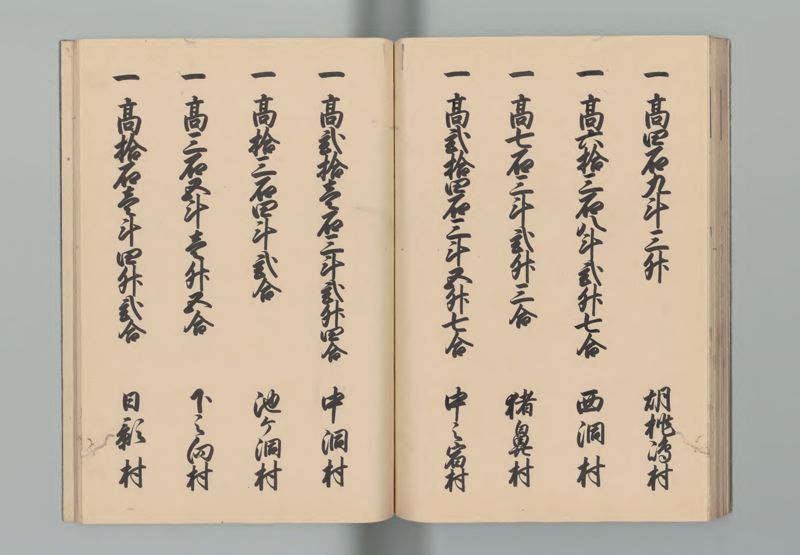 一 高四石九斗三升 胡桃嶋村
一 高六拾三石八斗弐升七合 西洞村
一 高七石三斗弐升三合 猪鼻村
一 高弐拾四石三斗五升七合 中之宿村
一 高弐拾壱石三斗弐升四合 中洞村
一 高拾三石四斗弐合 池ケ洞村
一 高三石五斗壱升五合 下之向村
一 高拾石壱斗四升弐合 日影村